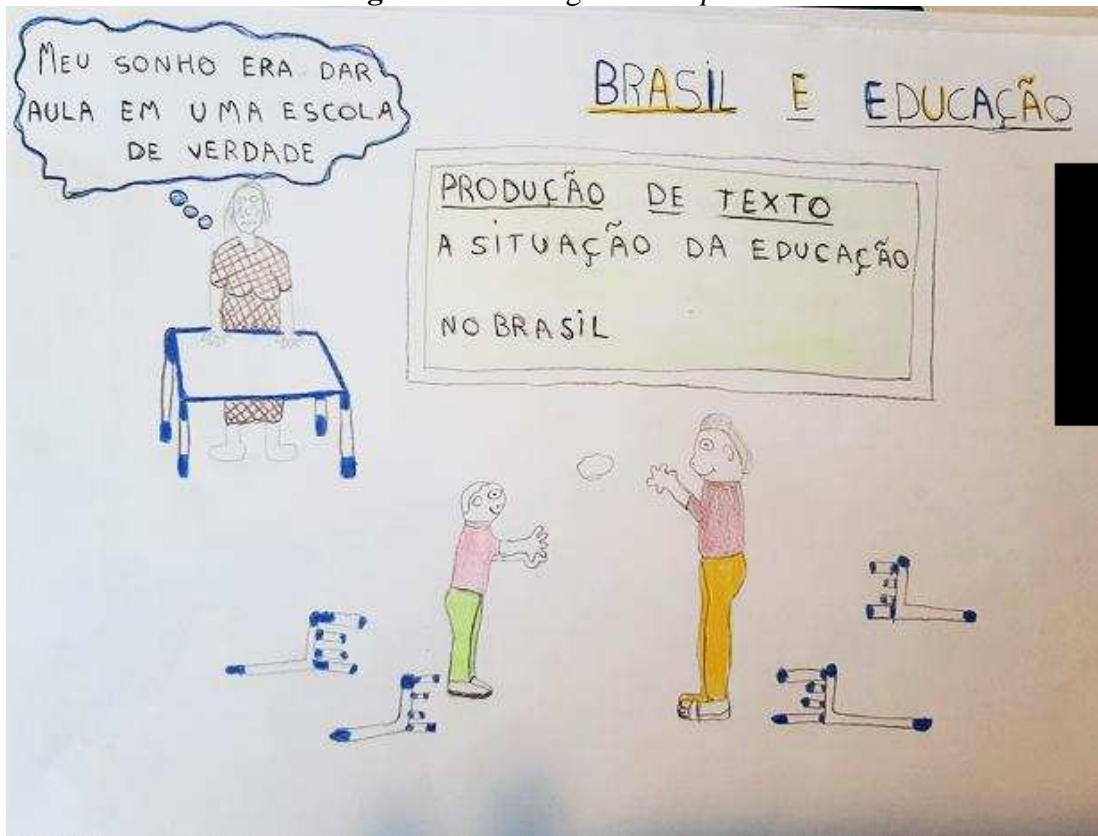 MEU SONHO ERA DAR
AULA EM UMA ESCOLA
DE VERDADE
BRASIL E EDUCAÇÃO
PRODUÇÃO DE TEXTO
A SITUAÇÃO DA EDUCAÇÃO
NO BRASIL